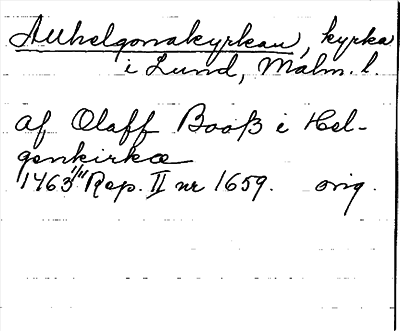 Allhelgonakyrkan, kyrka
i Lund, Malm. l.
af Olaff Booß i Hel-
genkirkæ
1463 1/11 Rep. II nr 1659. orig.